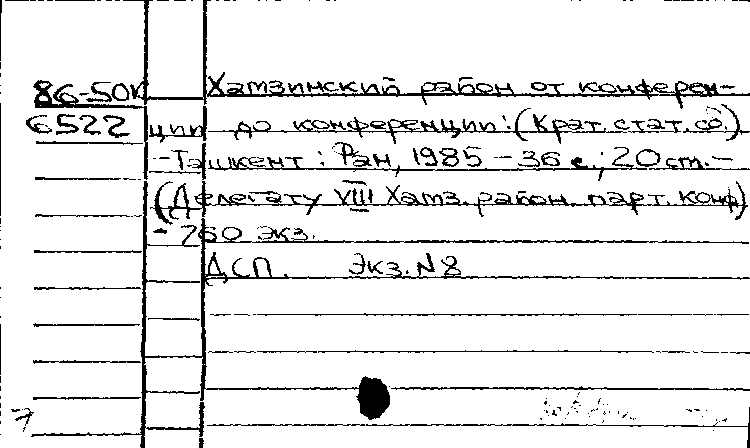 86-50к Хамзинский район от конферен-
6522 ции до конференции: (Крат. стат. сб.)
-Ташкент: Фан, 1985 - 36 с.; 20 ст. -
(Делегату VIII Хамз. район. парт. конф)
- 260 экз.
ДСП. Экз. N 8
7